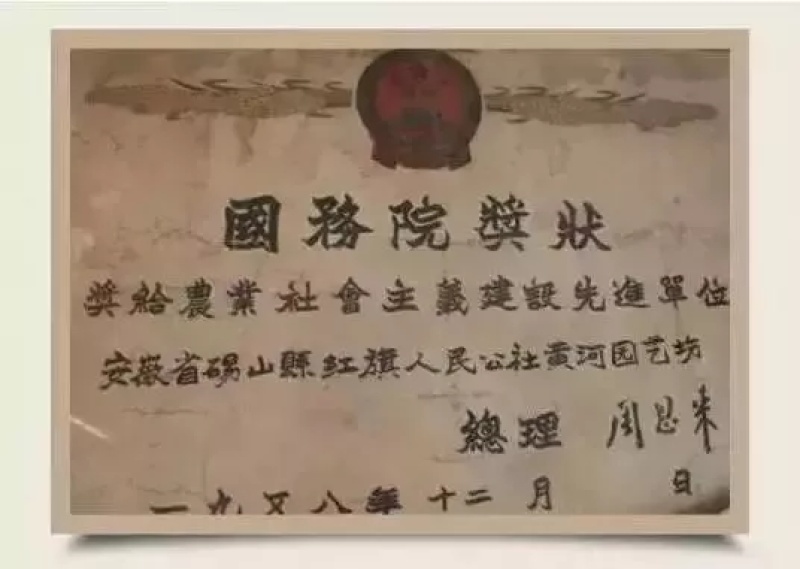 國務院獎狀
獎給農業社會主義建設先進單位
安徽省碭山縣红旗人民公社黄河园艺坊
總理 周恩来
一九五八年 十二月 日